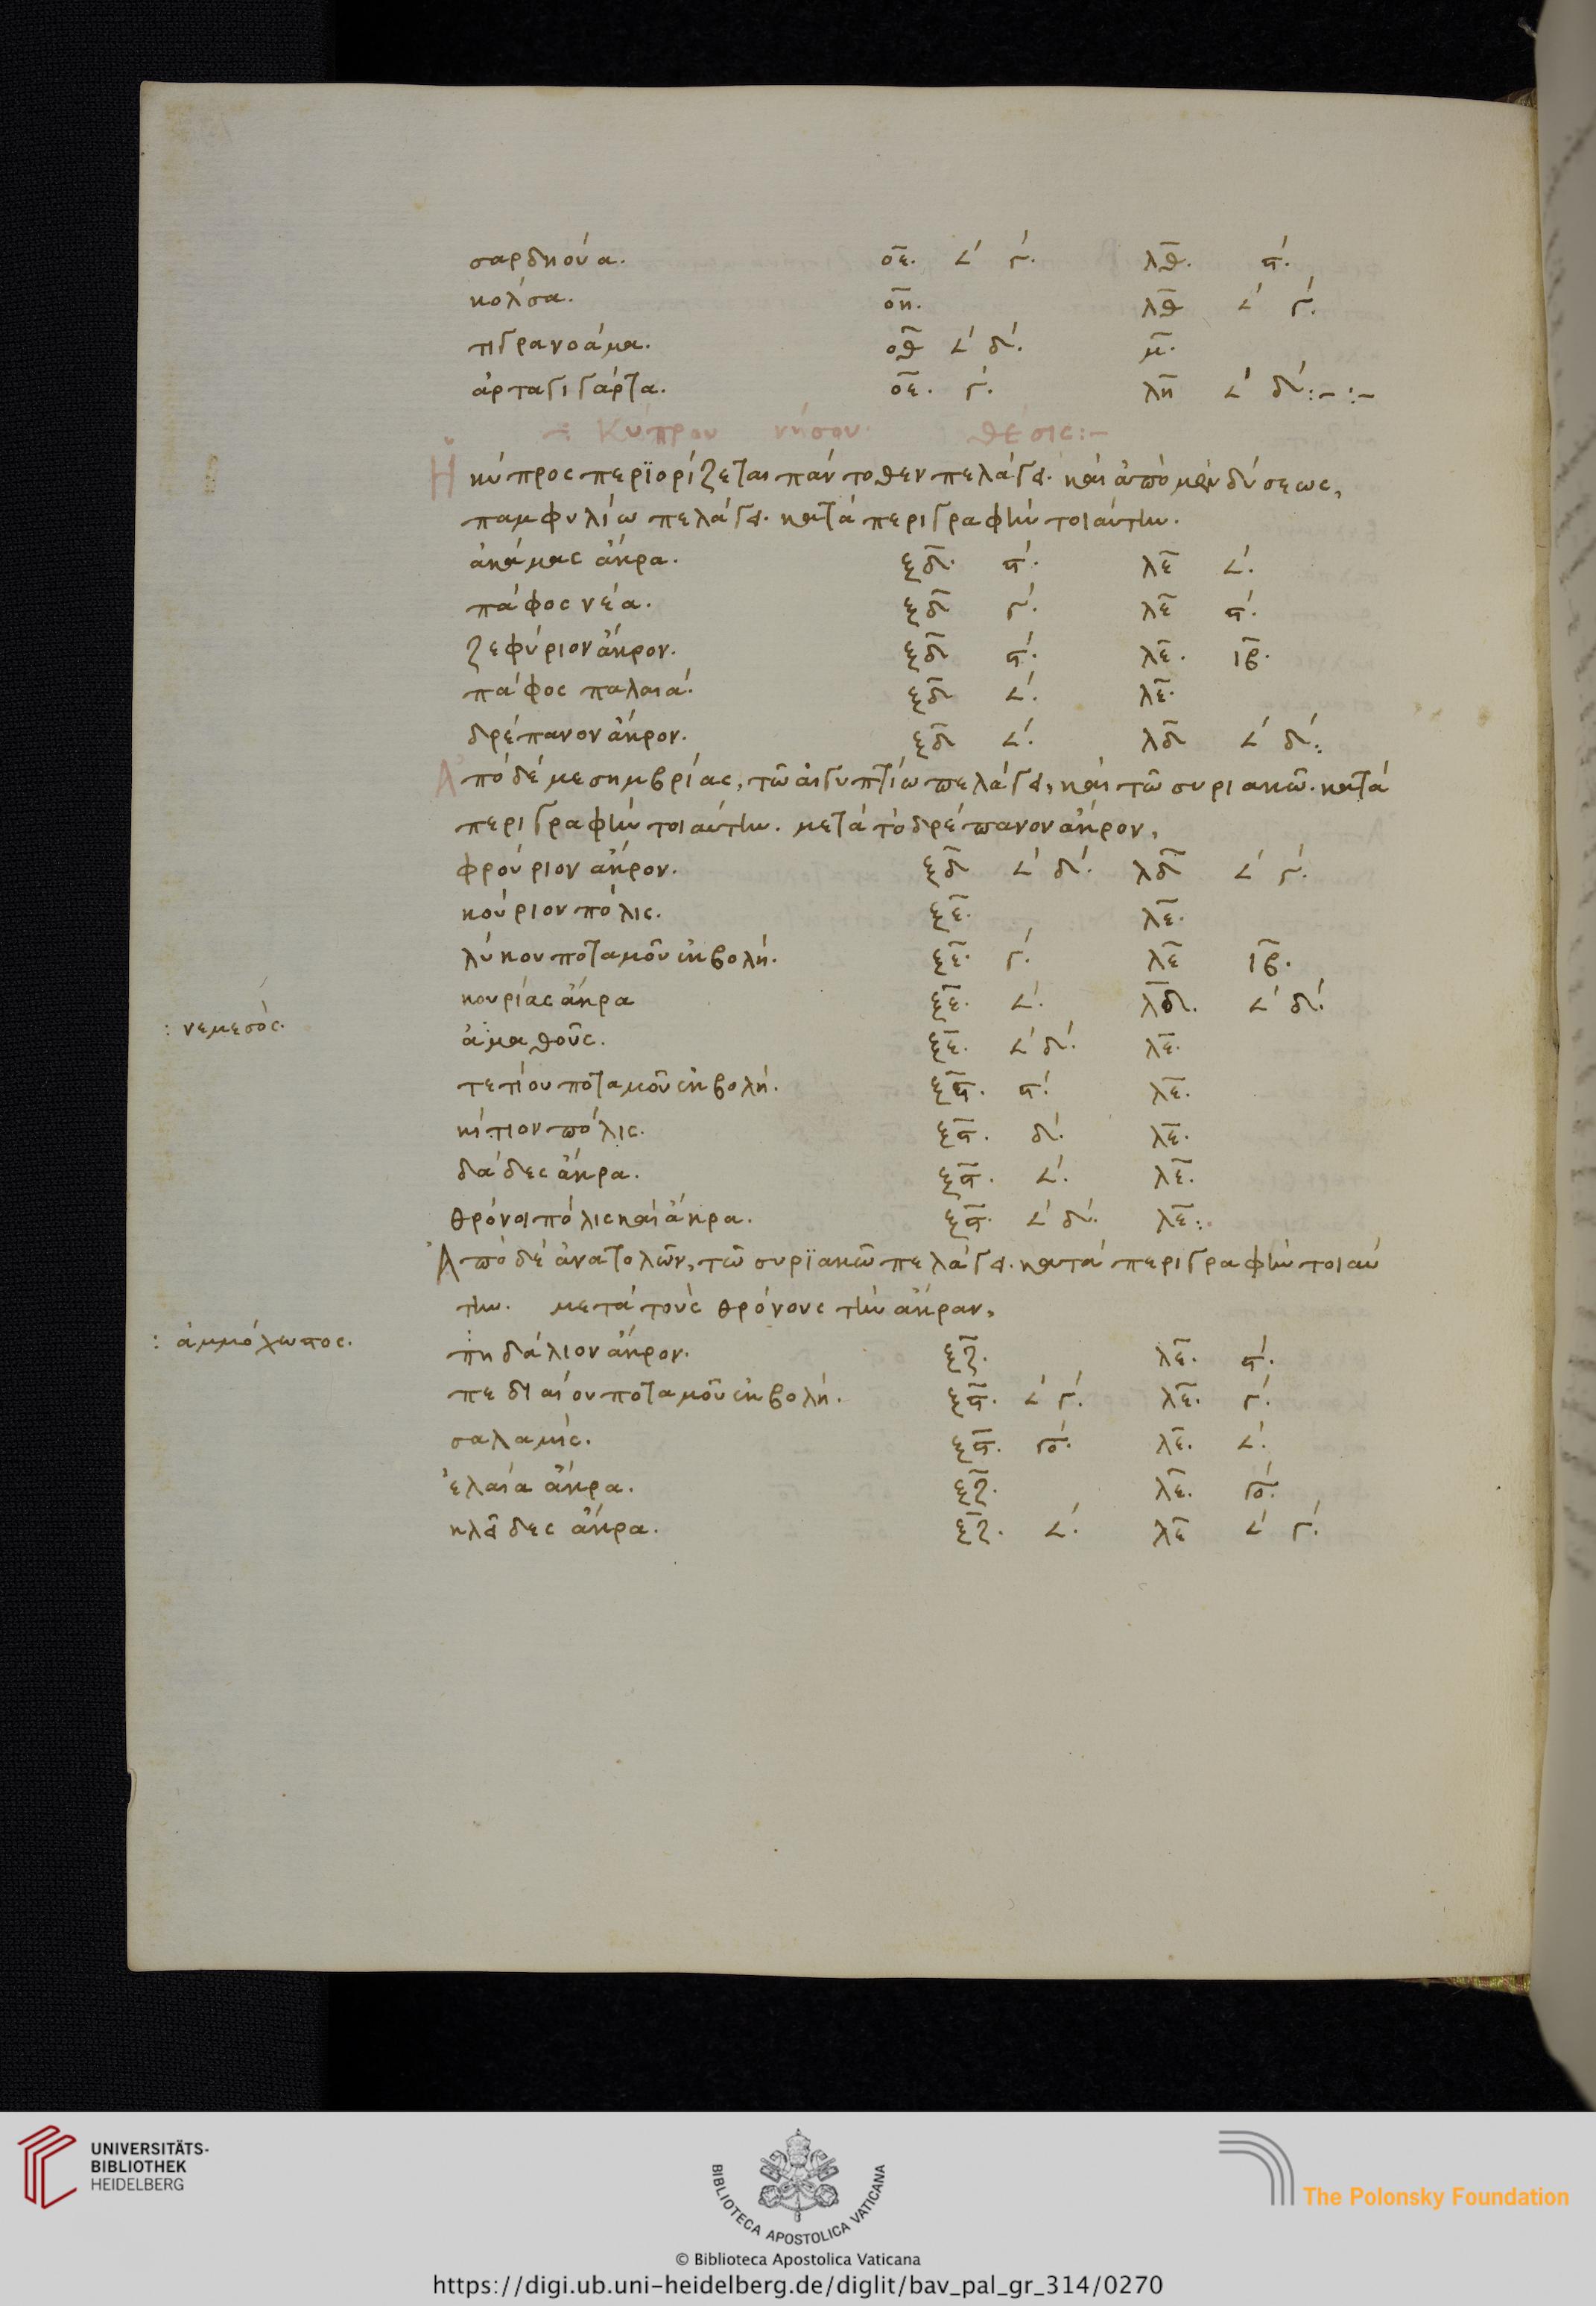 σαρδηούα. ο̅ε̅. 𐅵΄ γ΄. λ̅θ̅. ϛ΄.
κολσα. ο̅η̅. λ̅θ̅ 𐅵΄ γ΄.
τιγρανοάμα. ο̅θ̅ 𐅵΄ δ΄. μ̅.
ἀρταγιγάρτα. ο̅ε̅. γ΄. λ̅η̅ 𐅵΄ δ΄:-:-
Κύπρου νήσου θέσις:-
Ἡ κύπρος περϊορίζεται πάντοθεν πελάγει. καὶ ἀπὸ μὲν δύσεως,
παμφυλίω πελάγει. κατὰ περιγραφὴν τοιαύτην.
ἀκάμας ἄκρα. ξ̅δ̅. ϛ΄. λ̅ε̅ 𐅵΄.
πάφος νέα. ξ̅δ̅ γ΄. λ̅ε̅ ϛ΄.
ζεφύριον ἄκρον. ξ̅δ̅ ϛ΄. λ̅ε̅. ι̅β̅.
πάφος παλαιά. ξ̅δ̅ 𐅵΄. λ̅ε̅.
δρέπανον ἄκρον. ξ̅δ̅ 𐅵΄. λ̅δ̅ 𐅵΄ δ΄:
Ἀπὸ δὲ μεσημβρίας, τῶ αἰγυπτίω πελάγει, καὶ τῶ συριακῶ. κατὰ
περιγραφὴν τοιαύτην. μετὰ τὸ δρέπανον ἄκρον,
φρούριον ἄκρον. ξ̅δ̅ 𐅵΄ δ΄. λ̅δ̅ 𐅵΄ γ΄.
κούριον πόλις. ξ̅ε̅. λ̅ε̅.
λύκου ποταμοῦ ἐκβολή. ξ̅ε̅. γ΄. λ̅ε̅ ι̅β̅.
κουρίας ἄκρα ξ̅ε̅. 𐅵΄. λ̅δ̅. 𐅵΄ δ΄.
: νεμεσὸς.
ἀμαθοῦς. ξ̅ε̅. 𐅵΄ δ΄. λ̅ε̅.
τετίου ποταμοῦ ἐκβολή. ξ̅ϛ̅. ϛ΄. λ̅ε̅.
κίτιον πόλις. ξ̅ϛ̅. δ΄. λ̅ε̅.
δάδες ἄκρα. ξ̅ϛ̅. 𐅵΄. λ̅ε̅.
θρόνοι πόλις καὶ ἄκρα. ξ̅ϛ̅. 𐅵΄ δ΄. λ̅ε̅:
Ἀπὸ δὲ ἀνατολῶν, τῶ συρϊακῶ πελάγει. κατὰ περιγραφὴν τοιαύ
την. μετὰ τοὺς θρόνους τὴν ἄκραν,
: ἀμμόχωστος.
πηδάλιον ἄκρον. ξ̅ζ̅. λ̅ε̅. ϛ΄.
πεδιαίου ποταμοῦ ἐκβολή. ξ̅ϛ̅. 𐅵΄ γ΄. λ̅ε̅. γ΄.
σαλαμίς. ξ̅ϛ̅. γο΄. λ̅ε̅. 𐅵΄.
ἐλαία ἄκρα. ξ̅ζ̅. λ̅ε̅. γο΄.
κλεῖδες ἄκρα. ξ̅ζ̅. 𐅵΄. λ̅ε̅ 𐅵΄ γ΄.
UNIVERSITÄTS-
BIBLIOTHEK
HEIDELBERG
BIBLIOTECA APOSTOLICA VATICANA
The Polonsky Foundation
© Biblioteca Apostolica Vaticana
https://digi.ub.uni-heidelberg.de/diglit/bav_pal_gr_314/0270